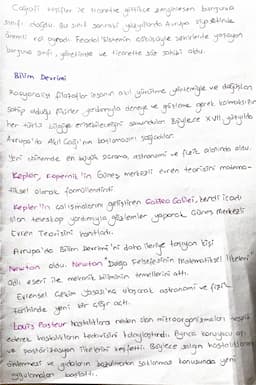 Coğrafi keşifler ile ticaretle gittikçe zenginleşen burjuva
sınıfı doğdu. Bu sınıf sonraki yüzyıllarda Avrupa siyasetinde
önemli rol oynadı. Feodal sistemin çöküşüyle şehirlerde yaşayan
burjuva sınıfı, yönetimde ve ticarette söz sahibi oldu.
Bilim Devrimi
Rasyonalist filozoflar insanın akıl yürütme yöntemiyle ve doğuştan
sahip olduğu fikirler yardımıyla deneye ve gözleme gerek kalmaksızın
her türlü bilgiye erişebileceğini savundular. Böylece XVII. yüzyılda
Avrupa'da Akıl Çağı'nın başlamasını sağladılar.
Yeni dönemde en büyük aşama, astronomi ve fizik alanında oldu.
Kepler, Kopernik'in Güneş merkezli evren teorisini matema-
tiksel olarak formüllendirdi.
Kepler'in çalışmalarını geliştiren Galileo Galilei, kendi icadı
olan teleskop yardımıyla gözlemler yaparak Güneş Merkezli
Evren Teorisini kanıtladı.
Avrupa'da Bilim Devrimi'ni daha ileriye taşıyan kişi
Newton oldu. Newton "Doğa Felsefesinin Matematiksel İlkeleri"
adlı eseri ile mekanik biliminin temellerini attı.
Evrensel Çekim Yasası'na ulaşarak astronomi ve fizik
tarihinde yeni bir çığır açtı.
Louis Pasteur hastalıklara neden olan mikroorganizmaları tespit
ederek hastalıkların tedavisini kolaylaştırdı. Ayrıca koruyucu aşı
ve pastörizasyon ilkelerini keşfetti. Böylece salgın hastalıkların
önlenmesi ve gıdaların bozulmadan saklanması konusunda yeni
uygulamaları başlattı.